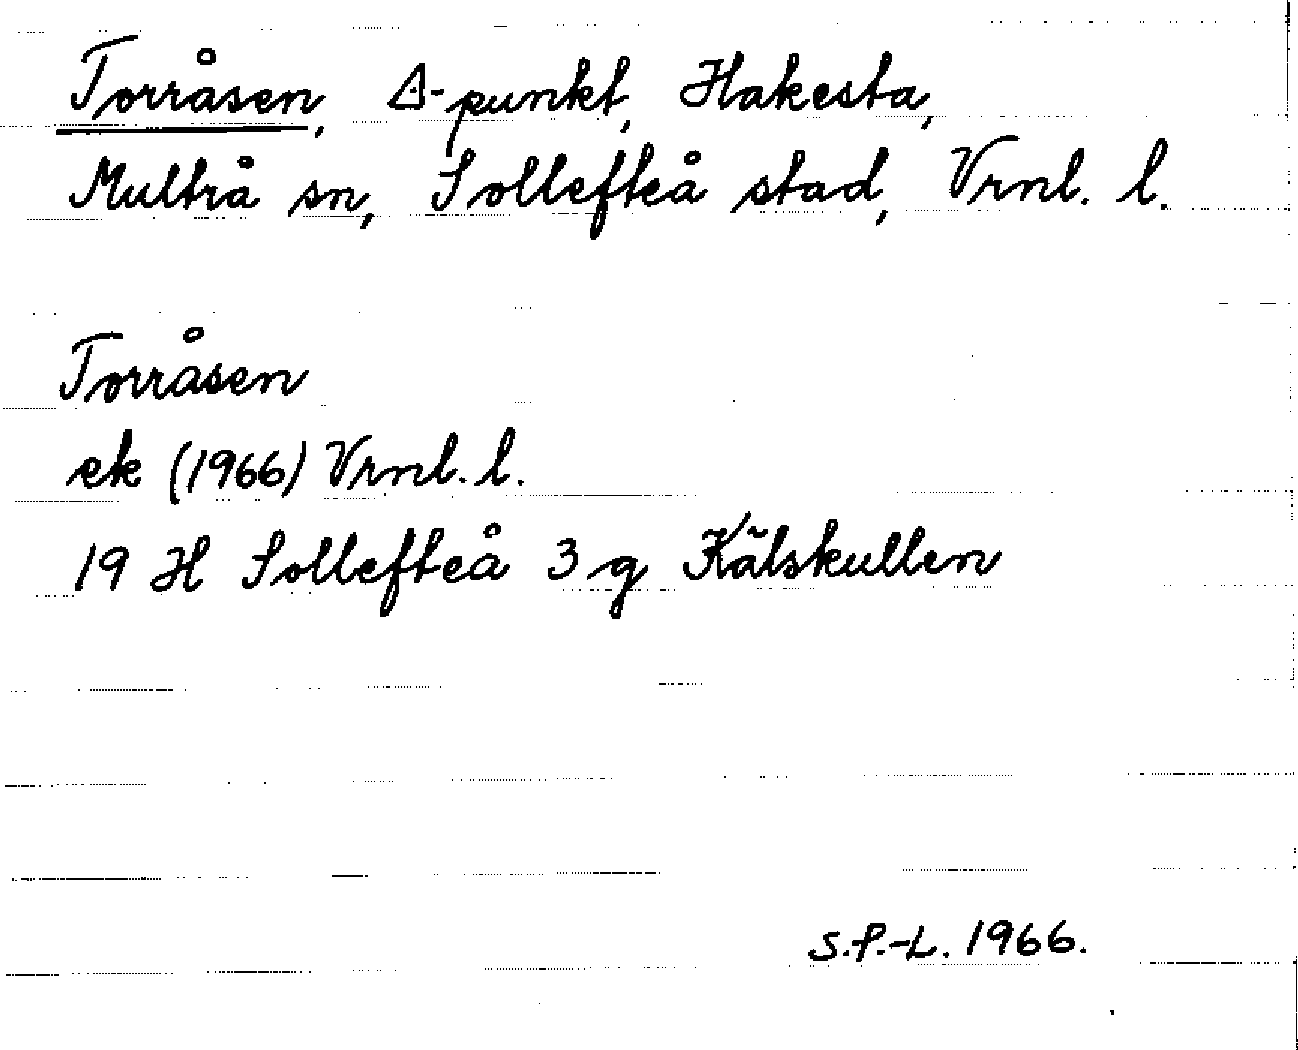 Torråsen, ◬-punkt, Hakesta,
Multrå sn, Sollefteå stad, Vrnl. l.
Torråsen
ek (1966) Vrnl. l.
19 H Sollefteå 3 g Kälskullen
S.P.-L. 1966.